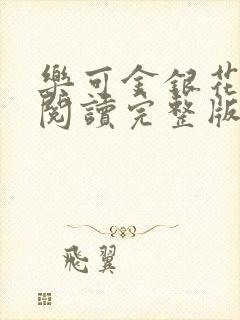 樂可金銀花
閱讀完整版
飛翼